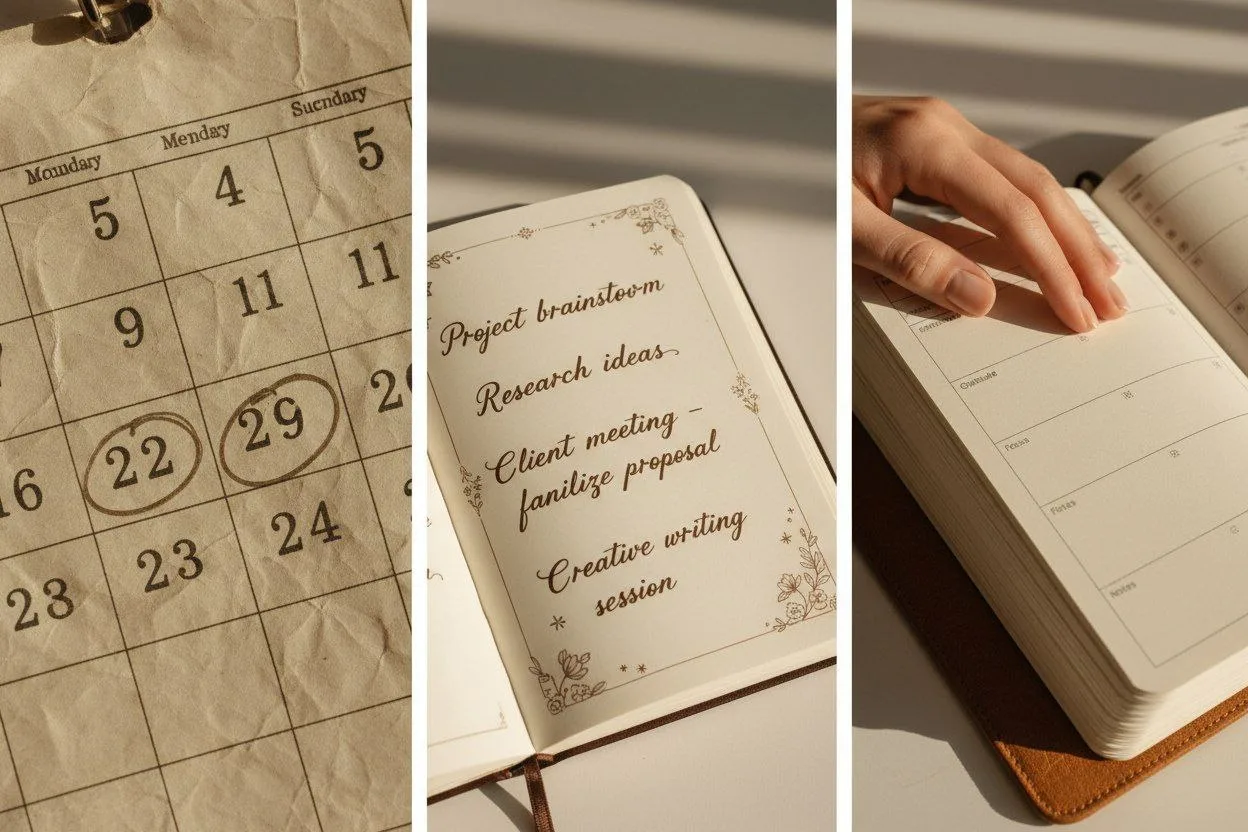 Mouudary Menday Sucndary
5 4 5
9 11 11
16 22 29
23 23 24
Project brainstovm
Research ideas
Client meeting –
fanilize proposal
Creative writing
session
Notes